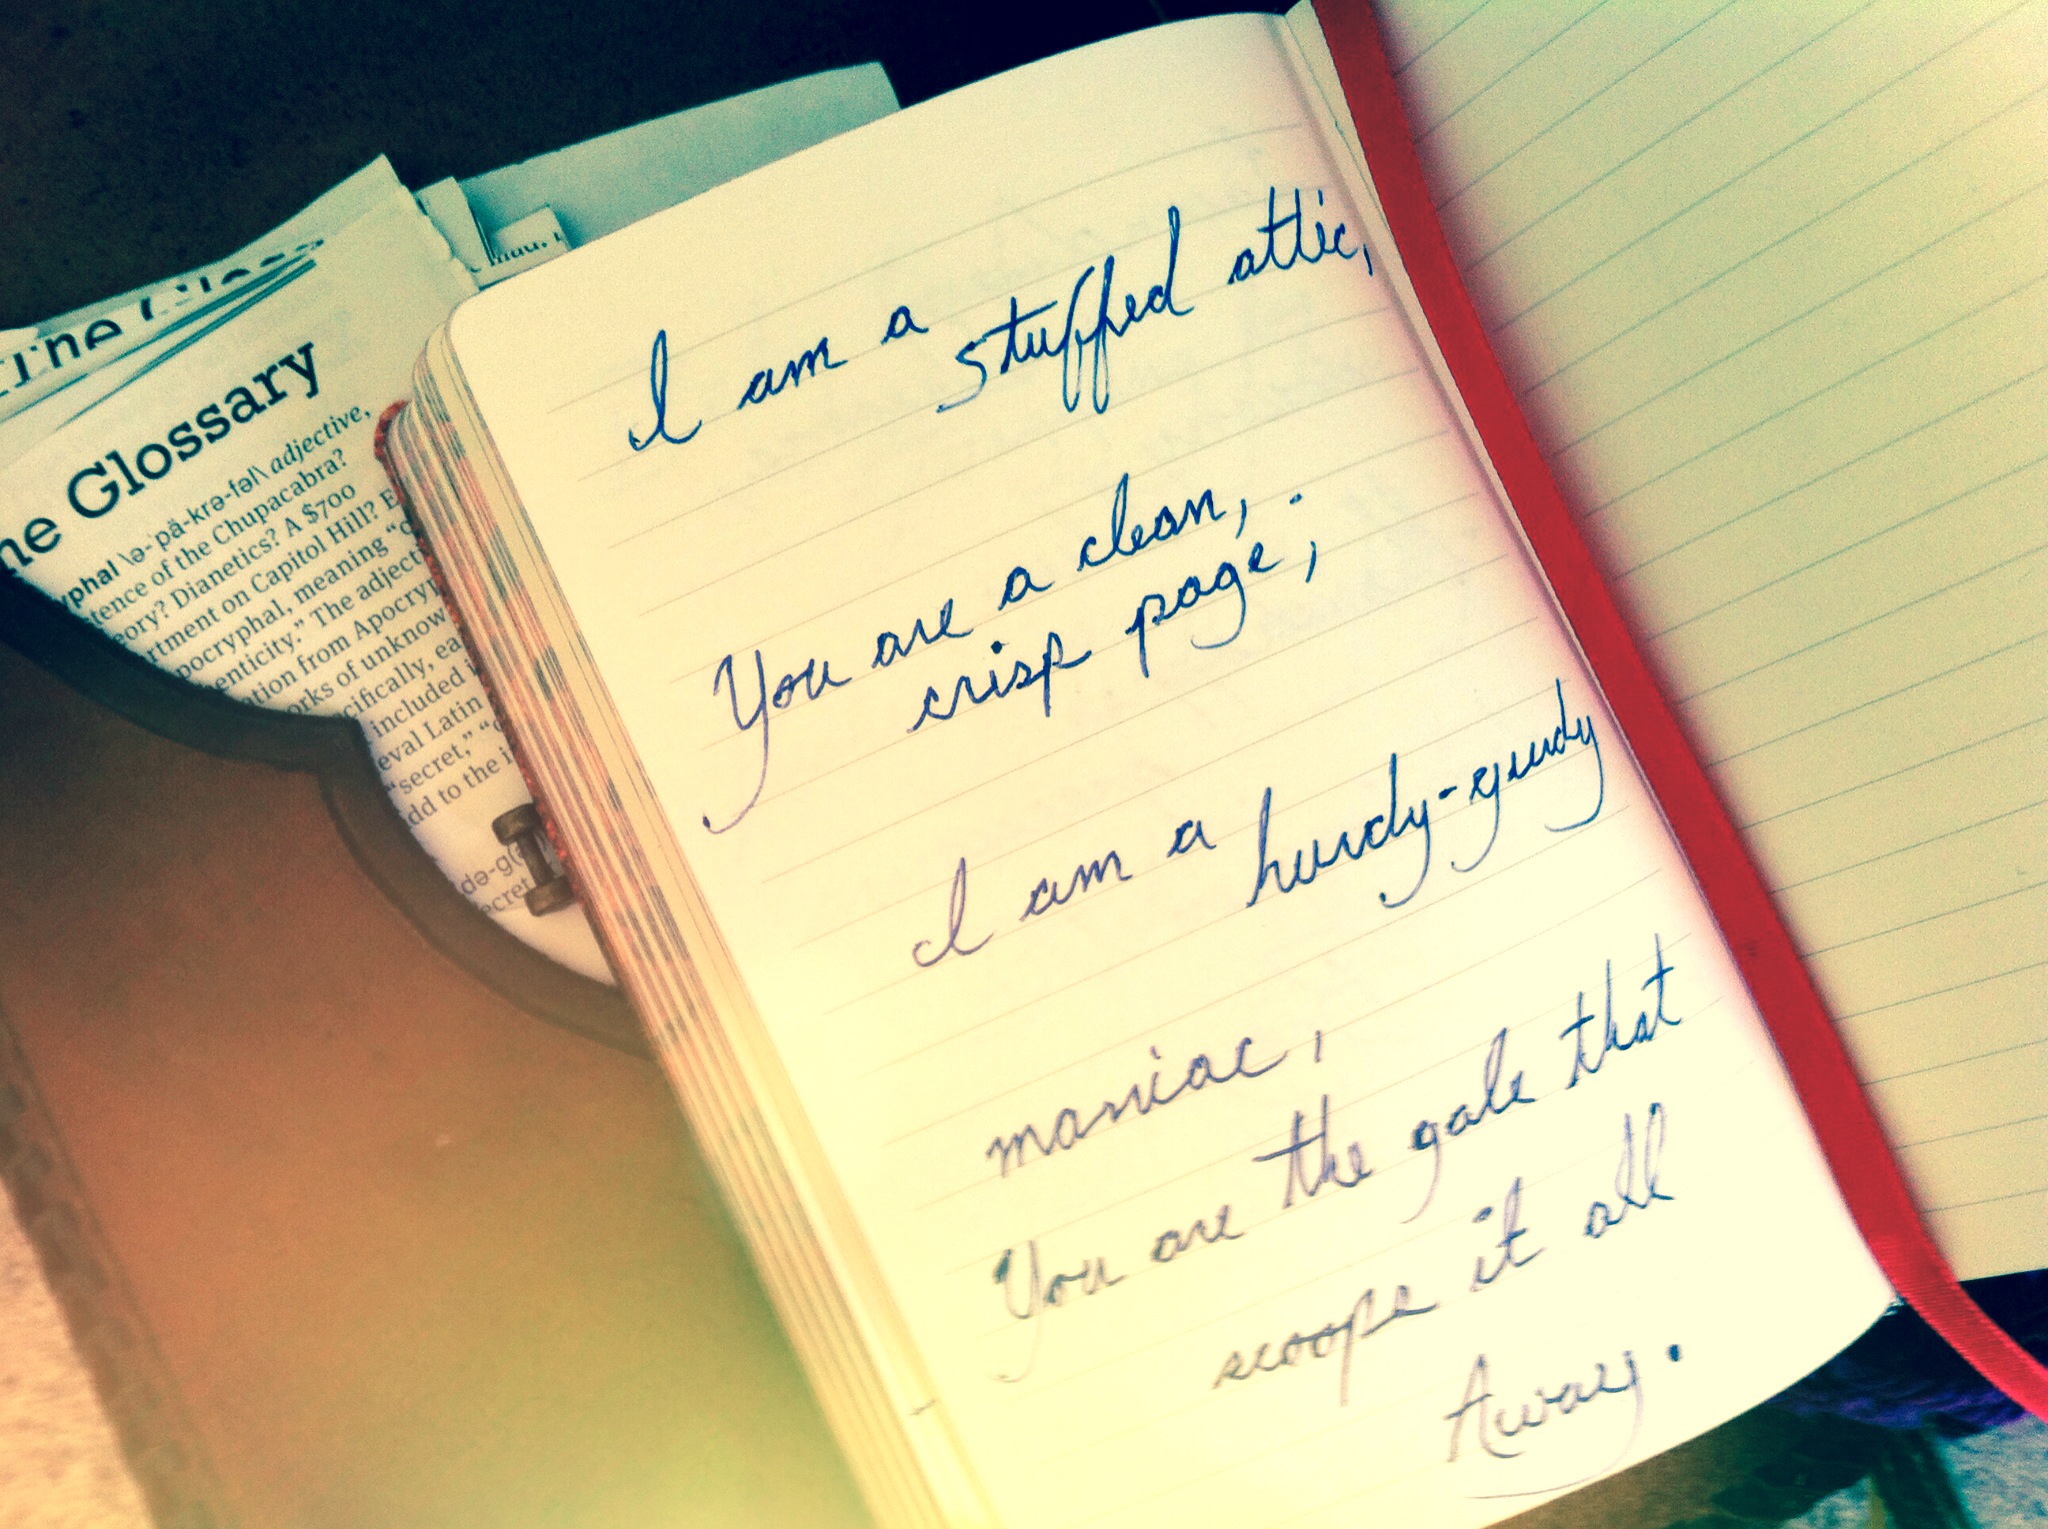 I am a
stuffed attic,
You are a clean,
crisp page,
I am a
hurdy-gurdy
maniac,
You are the gale that
scoops it all
Away.
The Gloss
he Glossary
yphal \ə-ˈpä-krə-fəl\ adjective,
tence of the Chupacabra?
eory? Dianetics? A $700
rtment on Capitol Hill? E
pocryphal, meaning “
enticity.” The adjecti
ation from Apocryp
orks of unknow
cifically, ea
included i
eval Latin
“secret,” “
dd to the i
də-g(
ecret